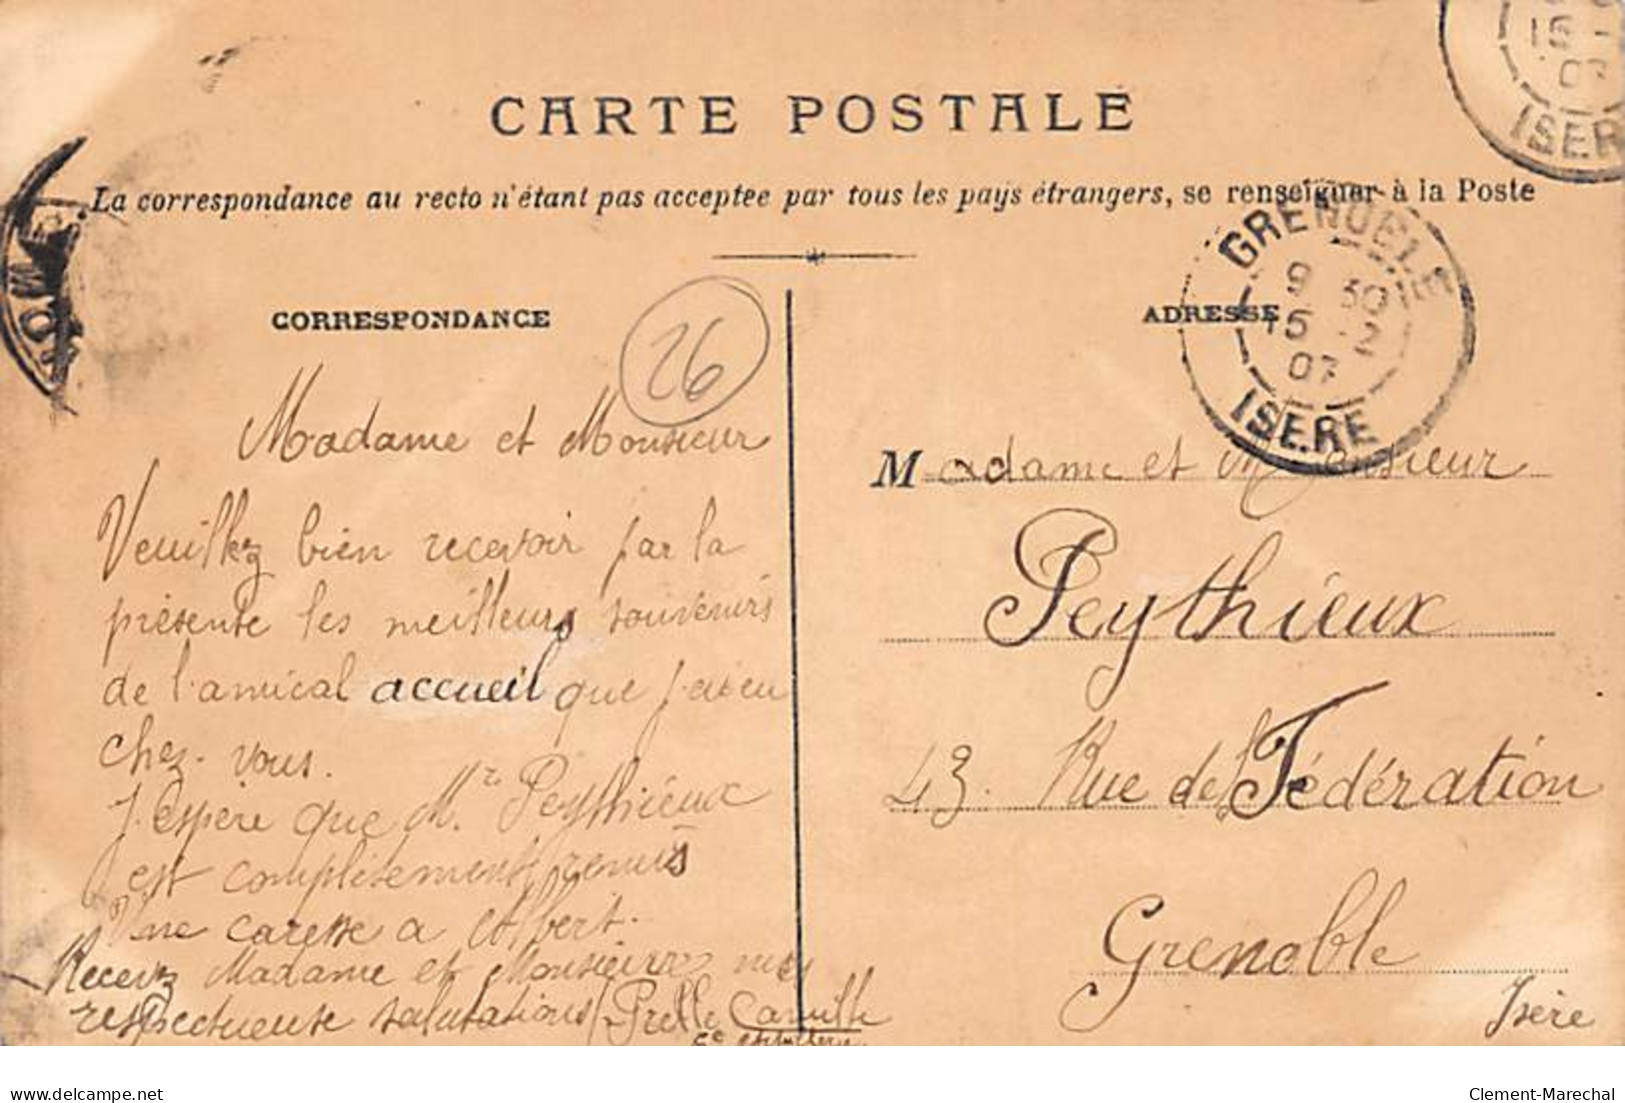 CARTE POSTALE
La correspondance au recto n'étant pas acceptée par tous les pays étrangers, se renseigner à la Poste
CORRESPONDANCE
26
Madame et Monsieur
Veuillez bien recevoir par la
présente les meilleurs souvenirs
de l'amical accueil que j'ai eu
chez-vous.
J'espère que Mr Peythieux
est complètement remis
Une caresse a Albert.
Recevez Madame et Monsieur mes
respectueuse salutations Prelle Camille
ADRESSE
GRENOBLE
9 30
15 -2
07
ISERE
Madame et Monsieur
Peythieux
43. Rue de la Fédération
Grenoble
Isère
15
07
ISERE
delcampe.net
Clement-Marechal